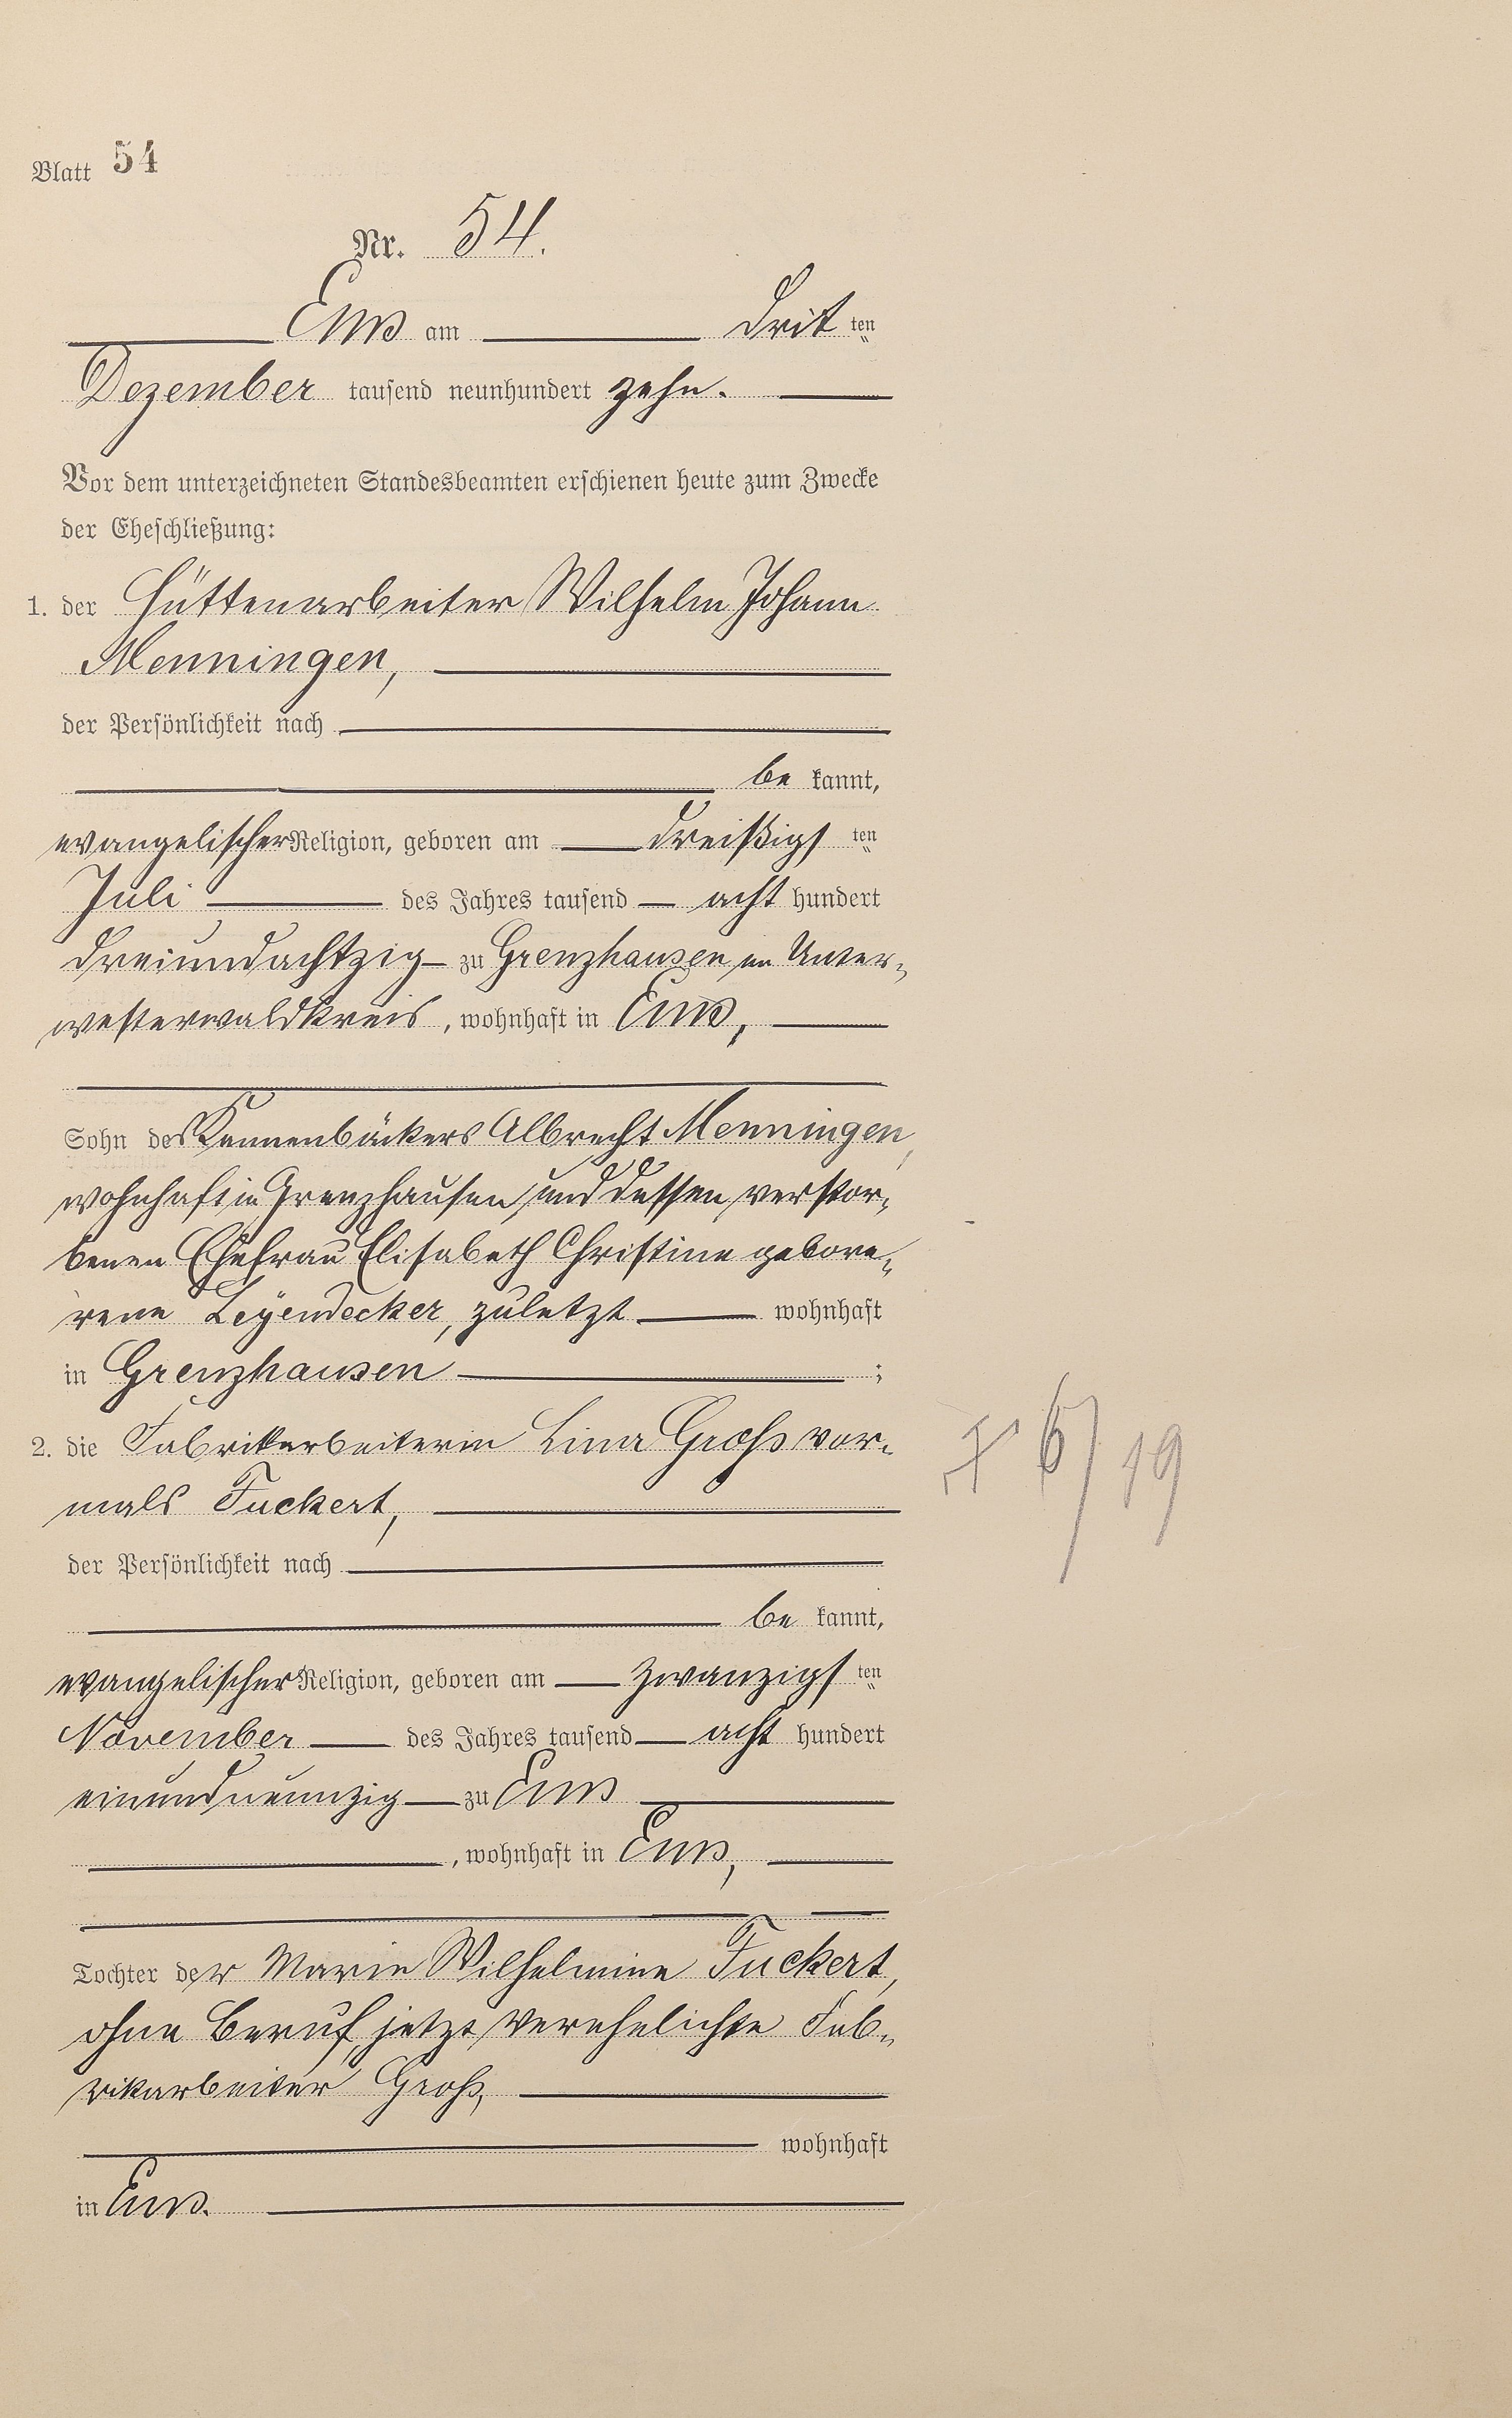 Blatt 54
Nr. 54.
Ems am drit ten
Dezember tausend neunhundert zehn.
Vor dem unterzeichneten Standesbeamten erschienen heute zum Zwecke
der Eheschließung:
1. der Hüttenarbeiter Wilhelm Johann
Menningen,
der Persönlichkeit nach
be kannt,
evangelischer Religion, geboren am dreißigs ten
Juli des Jahres tausend acht hundert
dreiundachtzig zu Grenzhausen im Unter-
westerwaldkreis, wohnhaft in Ems,
Sohn des Kannenbäckers Albrecht Menningen,
wohnhaft in Grenzhausen und dessen verstor-
benen Ehefrau Elisabeth Christine gebore-
rene Leyendecker, zuletzt wohnhaft
in Grenzhausen ;
2. die Fabrikarbeiterin Lina Groß vor-
mals Fuckert,
der Persönlichkeit nach
be kannt,
evangelischer Religion, geboren am zwanzigs ten
November des Jahres tausend acht hundert
einundneunzig zu Ems
, wohnhaft in Ems,
Tochter der Marie Wilhelmine Fuckert,
ohne Beruf, jetzt verehelichte Fab-
rikarbeiter Groß,
wohnhaft
in Ems.
6/19